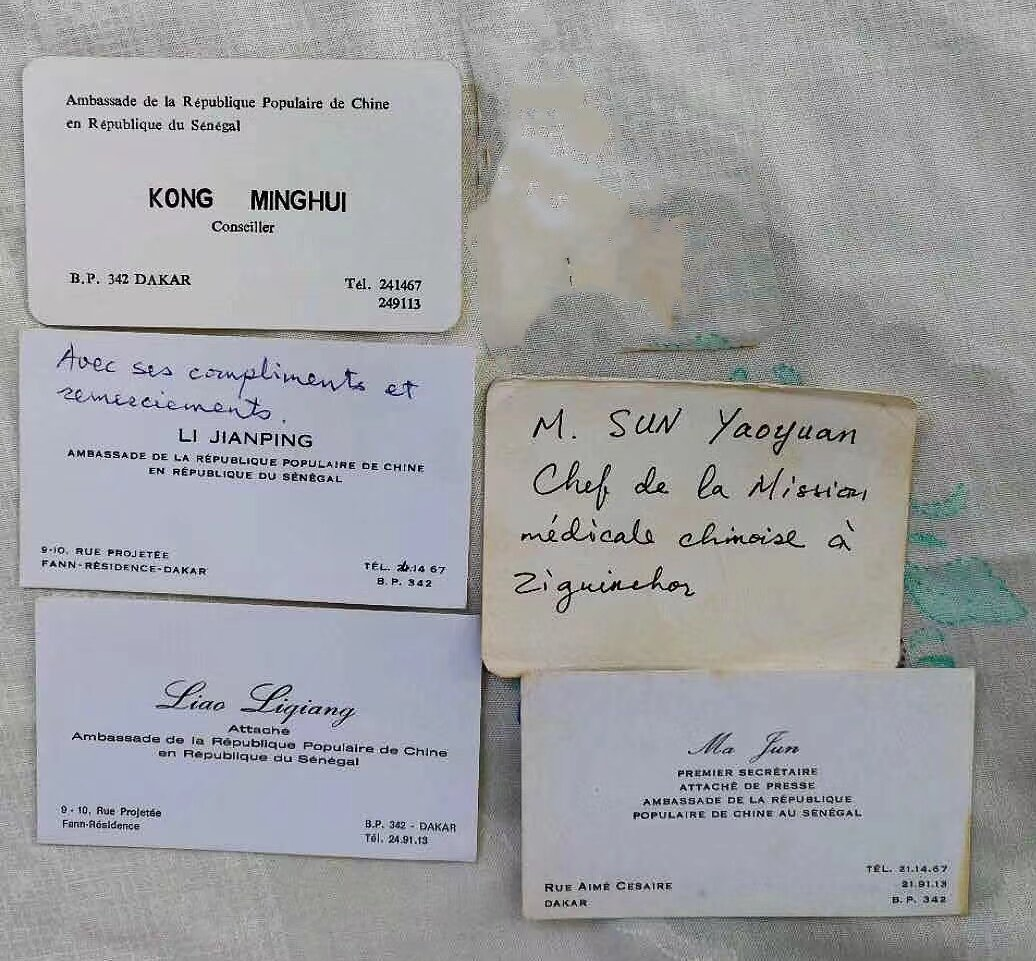 Ambassade de la République Populaire de Chine
en République du Sénégal
KONG MINGHUI
Conseiller
B.P. 342 DAKAR
Tél. 241467
249113
Avec ses compliments et
remerciements.
LI JIANPING
AMBASSADE DE LA RÉPUBLIQUE POPULAIRE DE CHINE
EN RÉPUBLIQUE DU SÉNÉGAL
9-10, RUE PROJETÉE
FANN-RÉSIDENCE-DAKAR
TÉL. 14 67
B.P. 342
Liao Liqiang
Attaché
Ambassade de la République Populaire de Chine
en République du Sénégal
9 - 10, Rue Projetée
Fann-Résidence
B.P. 342 - DAKAR
Tél. 24.91.13
M. SUN Yaoyuan
Chef de la Mission
médicale chinoise à
Ziguinchor
Ma Jun
PREMIER SECRÉTAIRE
ATTACHÉ DE PRESSE
AMBASSADE DE LA RÉPUBLIQUE
POPULAIRE DE CHINE AU SÉNÉGAL
RUE AIMÉ CESAIRE
DAKAR
TÉL. 21.14.67
21.91.13
B.P. 342